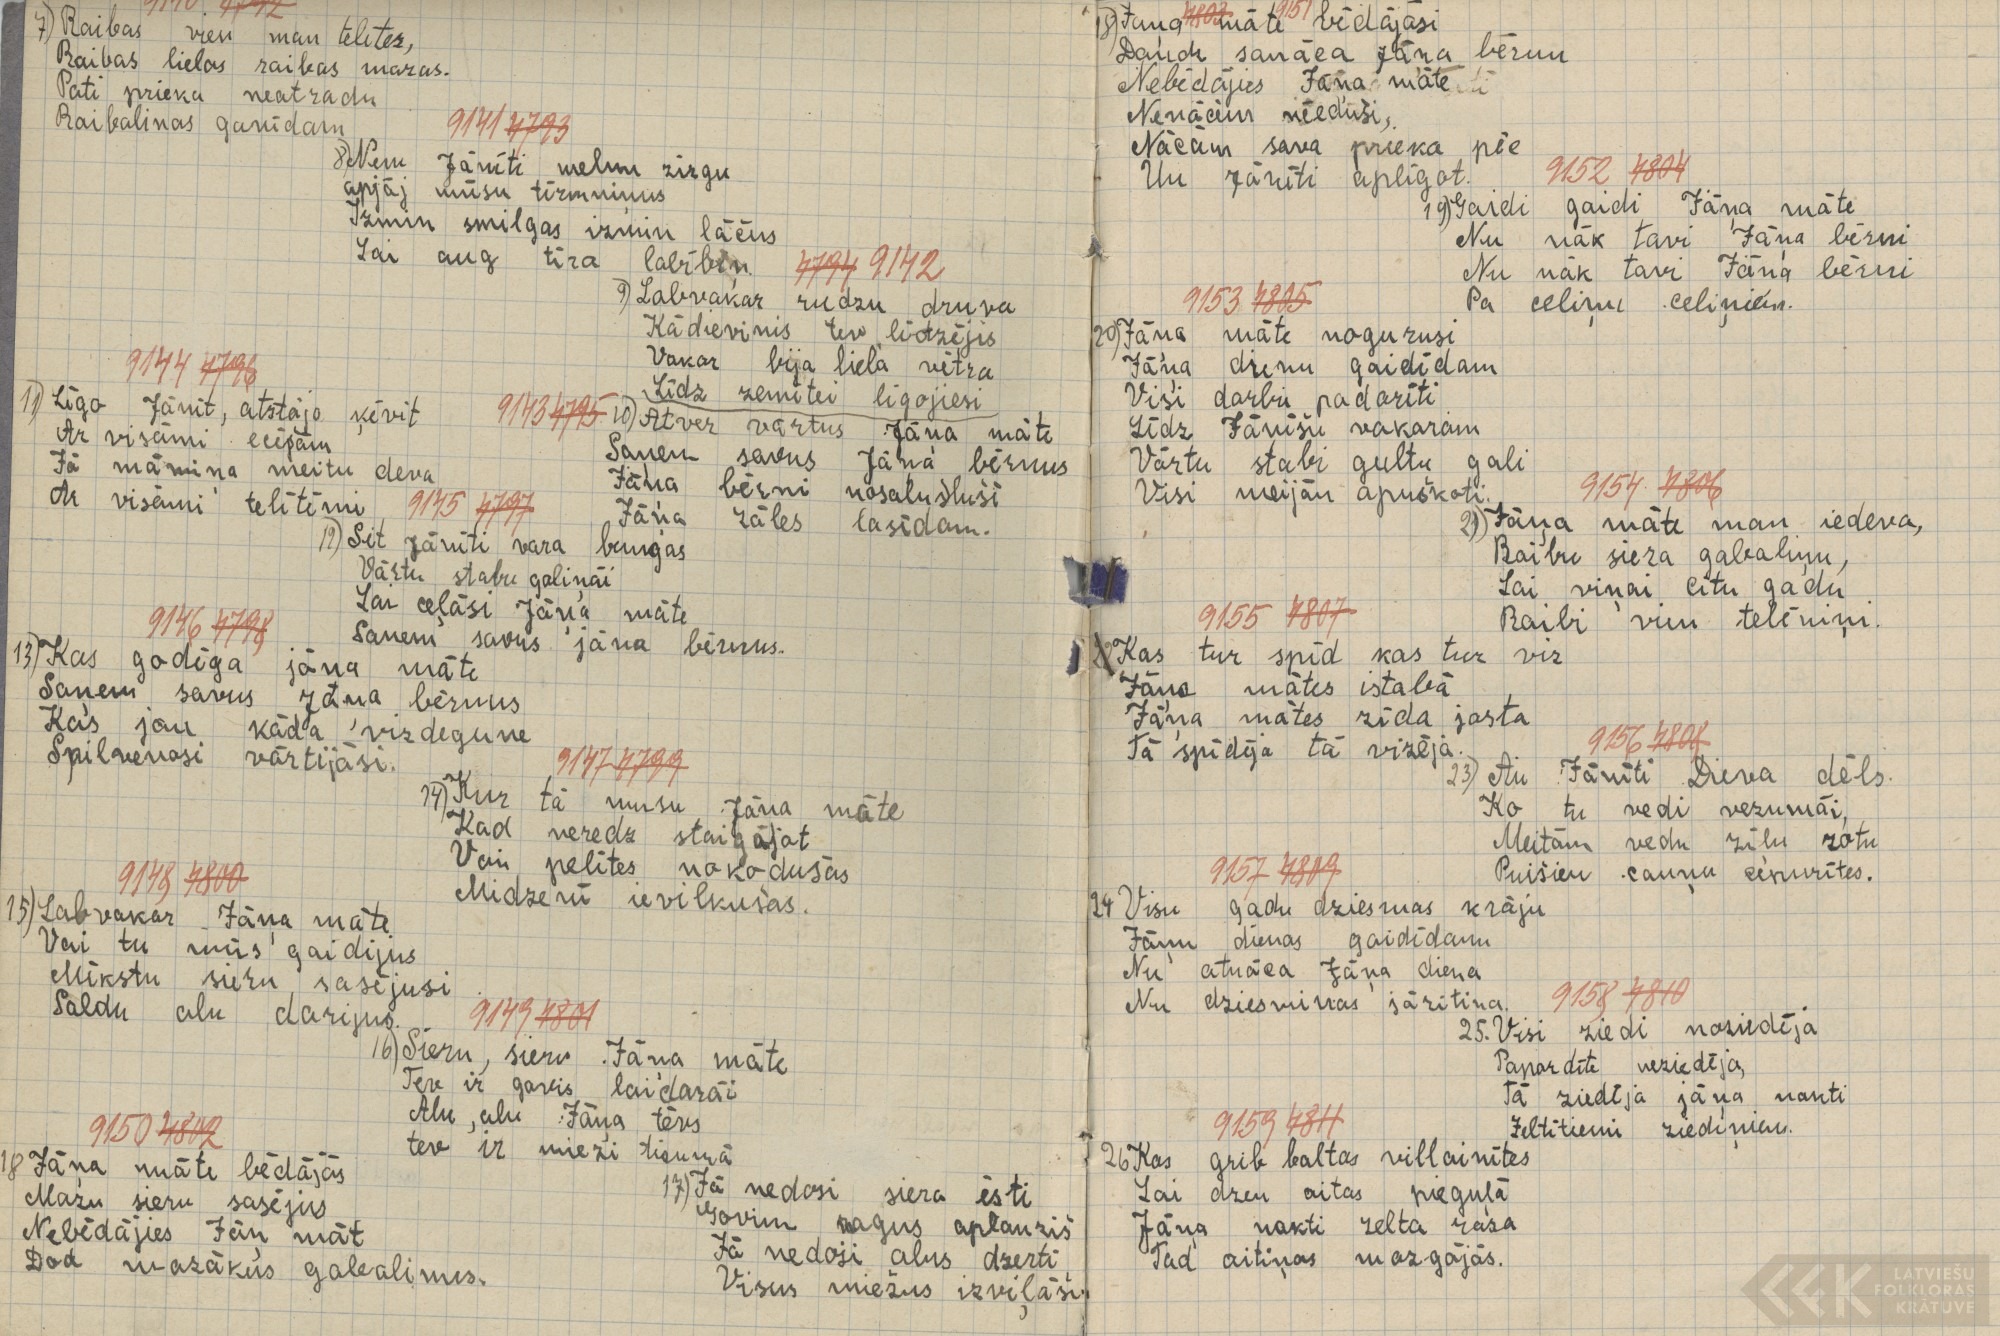 7) Raibas vien man telites,
Raibas lielas raibas mazas.
Pati prieka neatradu
Raibaliņas ganīdam
9141 4793
8) Ņem Jānīti melnu zirgu
apjāj mūsu tīrumiņus
Izmin smilgas izmin lāčus
Lai aug tīra labībiņ.
4794 9142
9) Labvakar rudzu druva
Kādievinis tev līdzējis
Vakar bija liela vētra
Līdz zemītei līgojiesi
9143 4795
10) Atver vārtus Jāņa māte
Saņem savus Jāņa bērnus
Jāņa bērni nosalušluši
Jāņa zāles lasīdam.
9144 4796
11) Līgo Jānīt, atstājo ķēvīt
Ar visāmi ecēšām
Jā māmiņa meitu deva
Ar visāmi telītēmi
9145 4797
12) Sit Jānīti vara bungas
Vārtu stabu galiņāi
Lai ceļāsi Jāņa māte
Saņem savus jāņa bērnus.
9146 4798
13) Kas godīga jāņa māte
Saņem savus jāņa bērnus
Kas jau kāda virdegune
Spilvenosi vārtijāsi.
9147 4799
14) Kur tā musu Jāņa māte
Kad neredz staigājot
Vai pelītes nokodušas
Midzenī ievilkušas.
9148 4800
15) Labvakar Jāņa māte
Vai tu mūs gaidijus
Mīkstu sieru sasējusi
Saldu alu darijus.
9149 4801
16) Sieru, sieru Jāņa māte
Tev ir govis laidarāi
Alu, alu Jāņa tēvs
tev ir mieži tīrumā
9150 4802
18 Jāņa māte bēdājās
Mazu sieru sasējus
Nebēdājies Jāņ māt
Dod mazākus gabalinus.
17) Jā nedosi siera ēsti
Govim ragus aplauzīš
Jā nedosi alus dzerti
Visus miežus izviļāši.
4803 9151
18) Jāņa māte bēdājāsi
Daudz sanāca Jāņa bērnu
Nebēdājies Jāņa māte
Nenācām nēeduši,
Nācām sava prieka pēc
Un Jānīti aplīgot.
9152 4804
19) Gaidi gaidi Jāņa māte
Nu nāk tavi Jāņa bērni
Nu nāk tavi Jāņa bērni
Pa celiņu celiņiem.
9153 4805
20) Jāņa māte nogurusi
Jāņa dienu gaidīdam
Visi darbi padarīti
Līdz Jānīšu vakaram
Vārtu stabi gultu gali
Visi meijām apuškoti.
9154 4806
21) Jāņa māte man iedeva,
Raibu siera gabaliņu,
Lai viņai citu gadu
Raibi vien telēniņi.
9155 4807
Kas tur spīd kas tur viz
Jāņa mātes istabā
Jāņa mātes zīda josta
Tā spīdēja tā vizēja.
9156 4808
23) Ai Jānīti Dieva dēls.
Ko tu vedi vezumāi,
Meitām vedu zīļu rotu
Puišiem cauņu cepurītes.
9157 4809
24 Visu gadu dziesmas krāju
Jāņu dienas gaidīdamu
Nu atnāca Jāņa diena
Nu dziesminas jāritina.
9158 4810
25. Visi ziedi noziedēja
Papardīte neziedēja,
Tā ziedēja jāņa nakti
Zeltītiemi ziediņiem.
9159 4811
26 Kas grib baltas villainītes
Lai dzen aitas pieguļā
Jāņa nakti zelta rasa
Tad aitiņas mazgājās.
LATVIEŠU
FOLKLORAS
KRĀTUVE